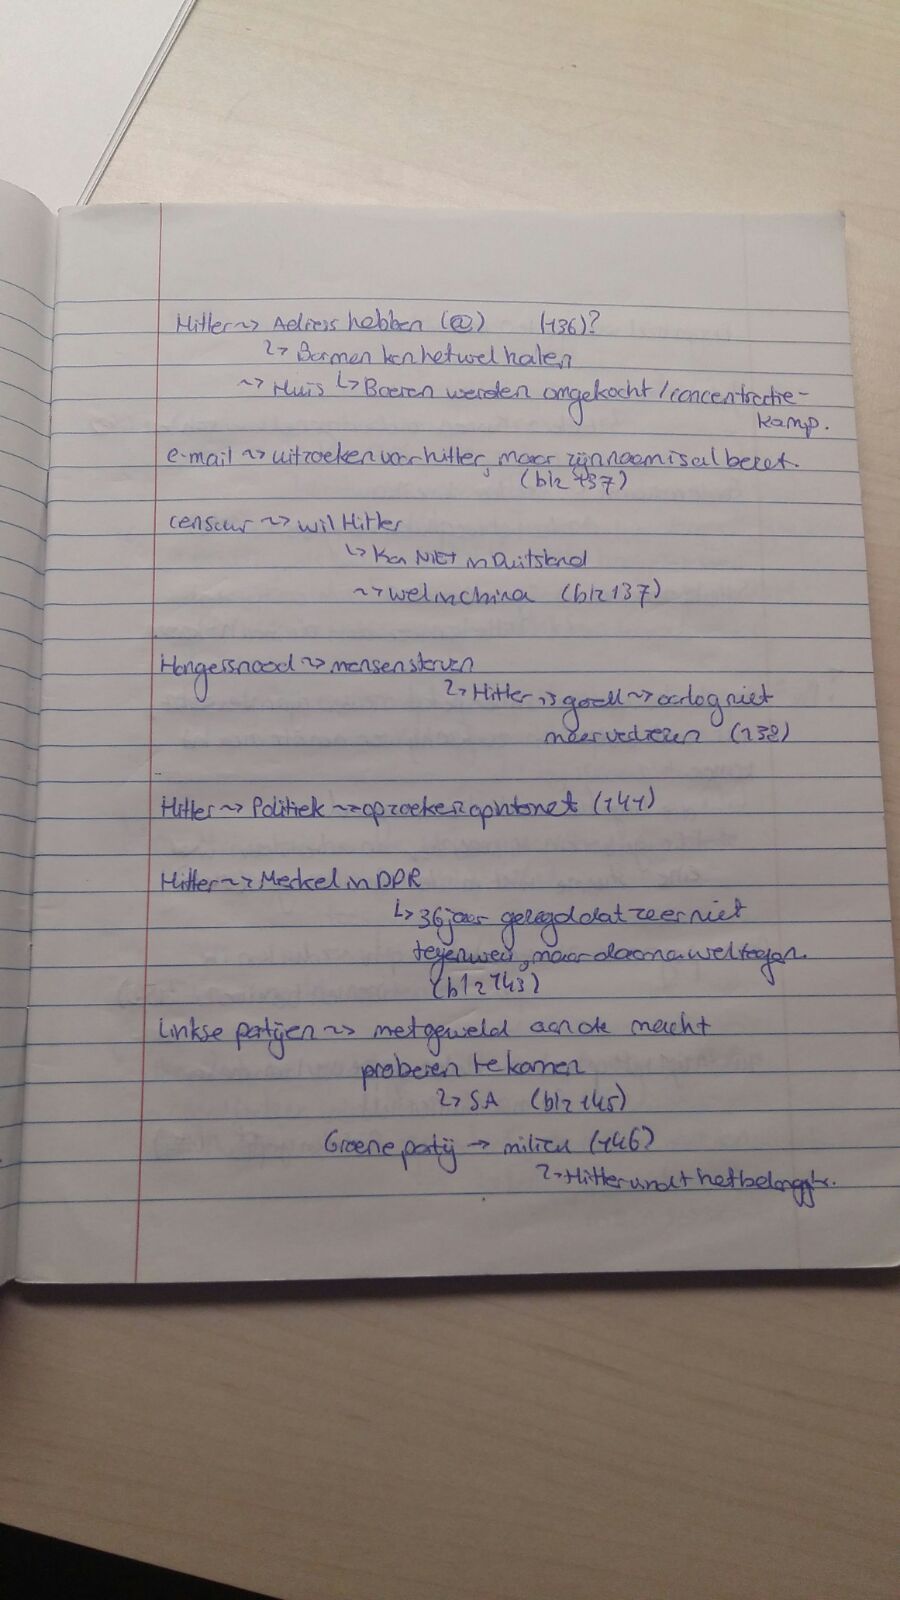 Hitler ~> Adress hebben (@) (136)?
↳ Borman kon het wel halen
~> Huis ↳ Boeren werden omgekocht / concentratie-
kamp.
e-mail ~> uitzoeken voor hitler, maar zijn naam is al bezet.
(blz 137)
censuur ~> wil Hitler
↳ Kan NIET in Duitsland
~> wel in china (blz 137)
Hongersnood ~> mensen sterven
↳ Hitler is goed ~> oorlog niet
meer verliezen (138)
Hitler ~> Politiek ~> opzoeken op internet (141)
Hitler ~> Merkel in DDR
↳ 36 jaar gelegd dat ze er niet
tegen was, maar daarna wel tegen.
(blz 143)
linkse partijen ~> met geweld aan de macht
proberen te komen
↳ SA (blz 145)
Groene partij → milieu (146)
↳ Hitler vindt het belangrijk.